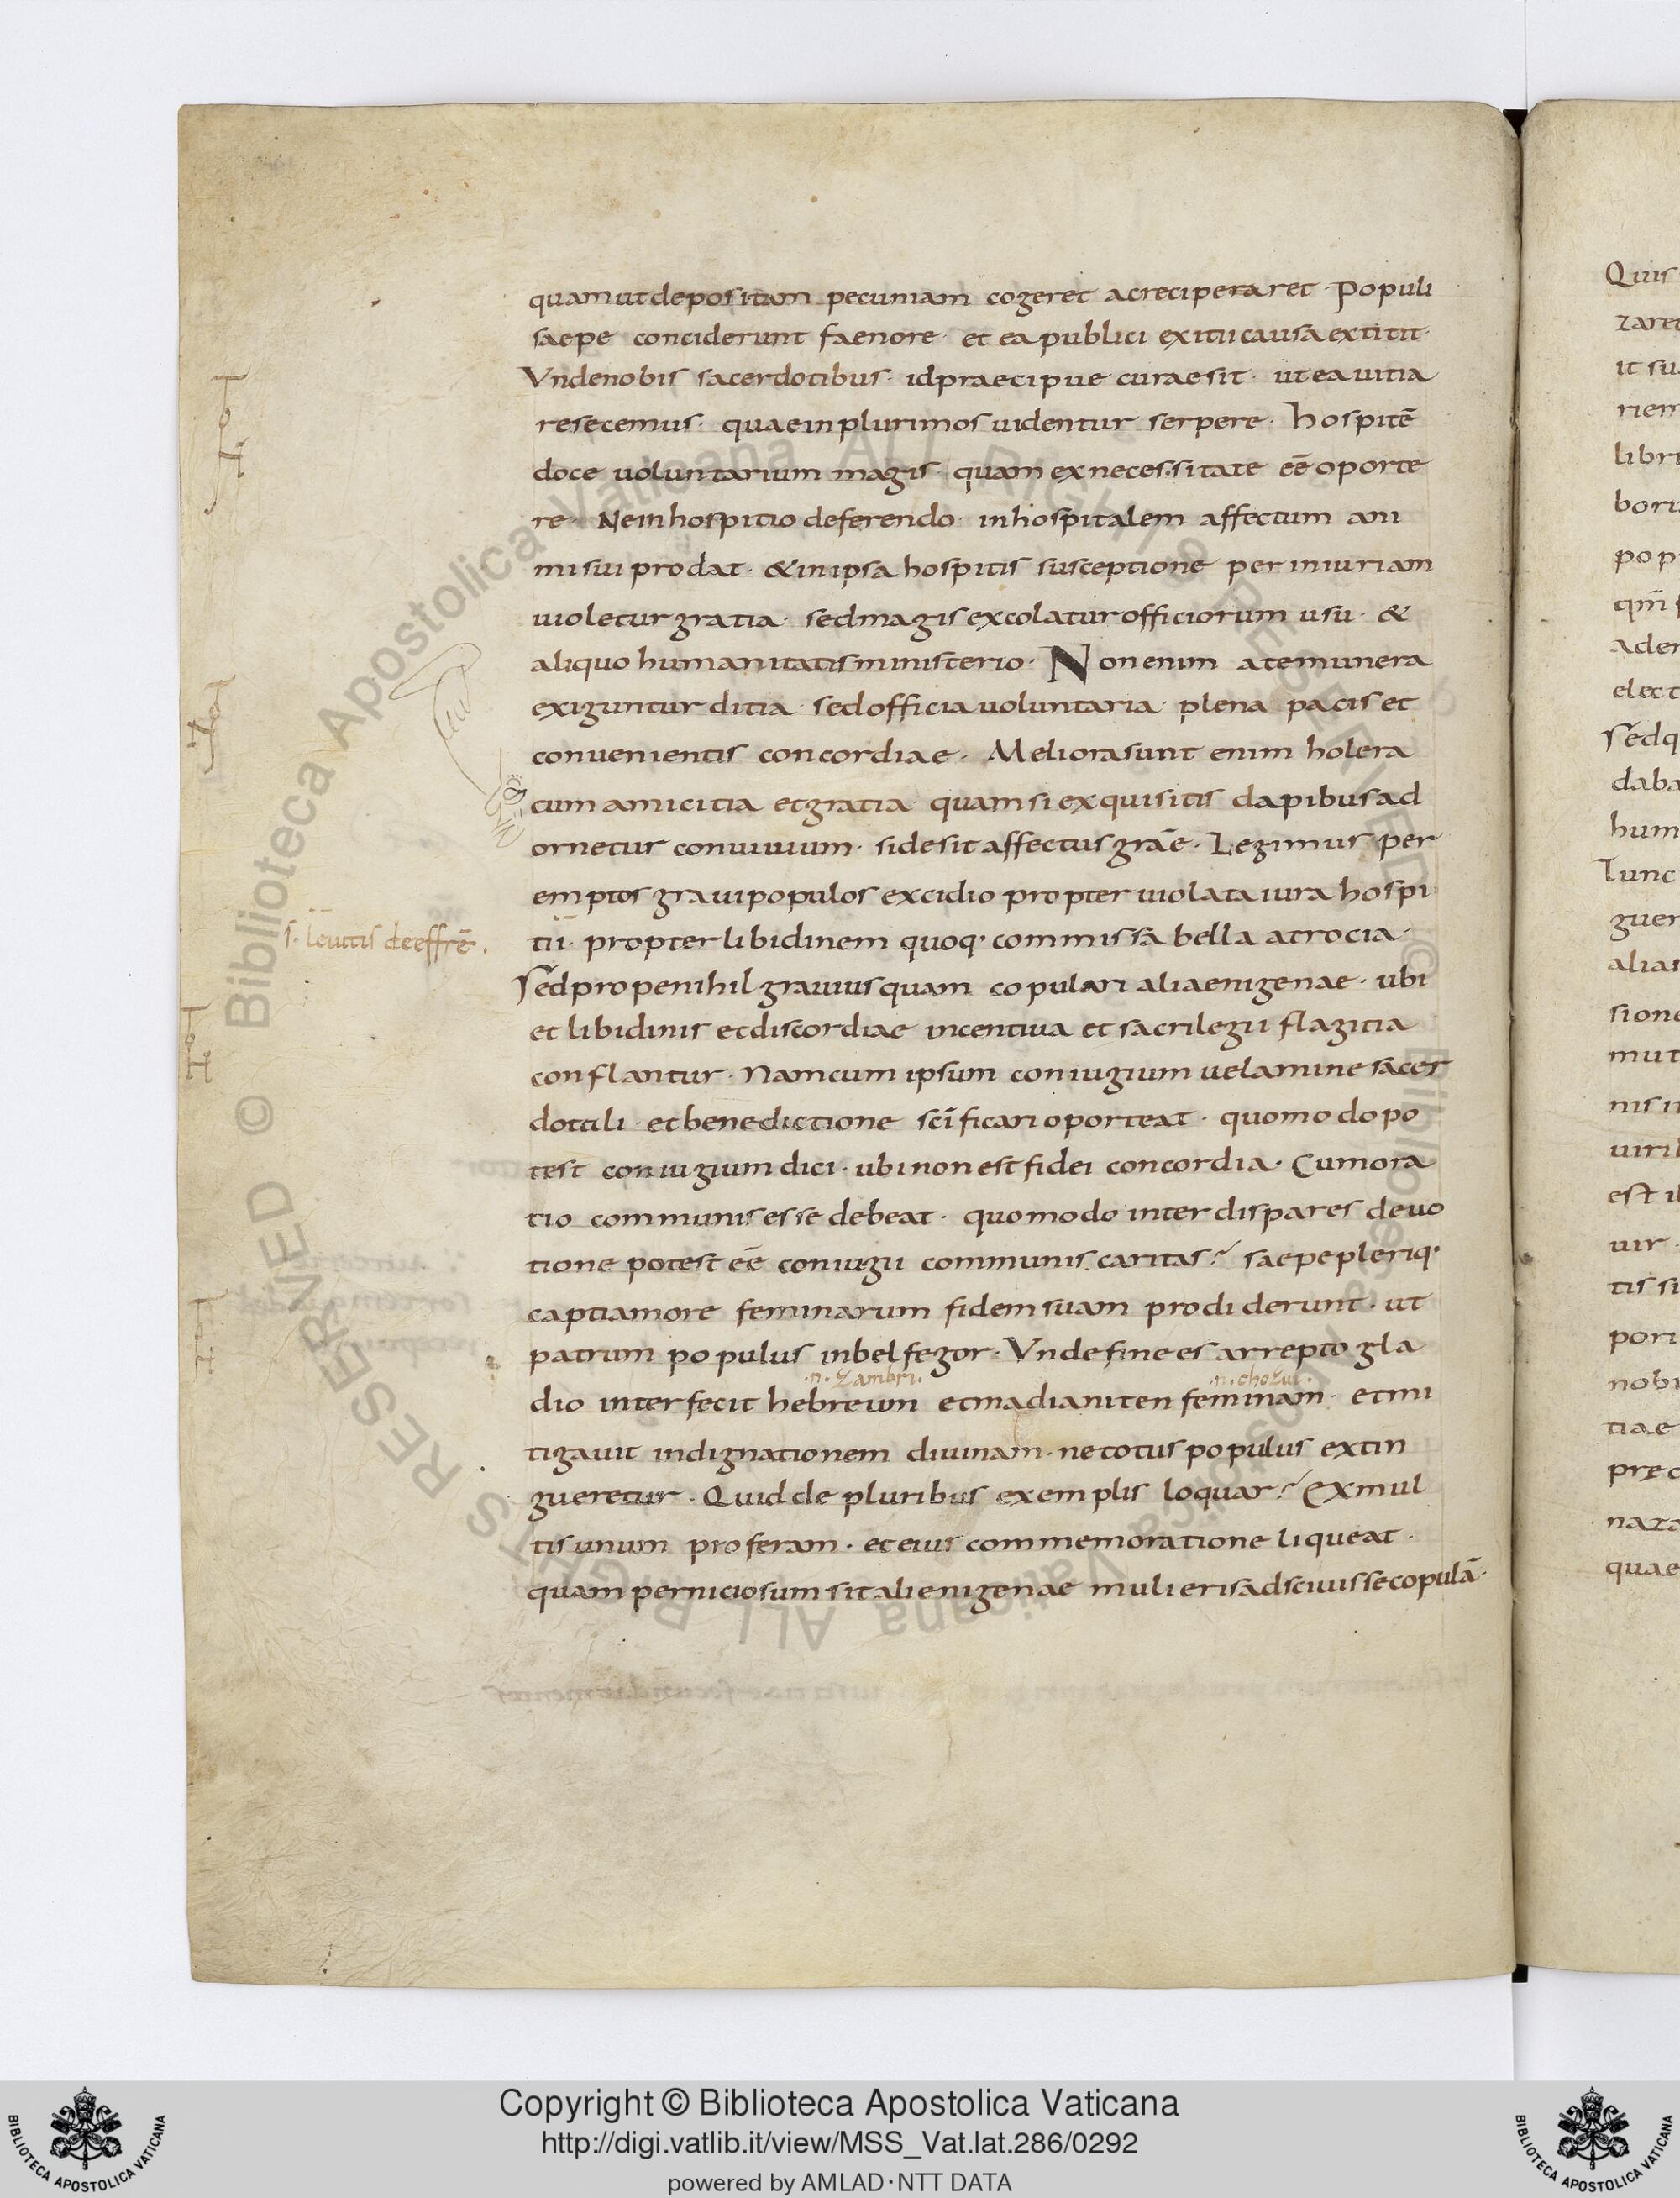 quam ut depositam pecuniam cogeret ac reciperaret · Populi
saepe conciderunt faenore · et ea publici exitii causa extitit ·
Vnde nobis sacerdotibus · id praecipue curae sit · ut ea uitia
resecemus · quae in plurimos uidentur serpere · hospitē
doce uoluntarium magis quam ex necessitate eē oporte
re · Ne in hospitio deferendo · inhospitalem affectum ani
mi sui prodat · & in ipsa hospitis susceptione per iniuriam
uioletur gratia · sed magis excolatur officiorum usu · &
aliquo humanitatis ministerio · Non enim a te munera
exiguntur ditia · sed officia uoluntaria · plena pacis et
conuenientis concordiae · Meliora sunt enim holera
cum amicitia et gratia quam si exquisitis dapibus ad
ornetur conuiuium · si desit affectus gratiae · Legimus per
emptos graui populos excidio propter uiolata iura hospi
s · leuitis de effrē ·
tii · propter libidinem quoq· commissa bella atrocia ·
Sed prope nihil grauius quam copulari aliaenigenae · ubi
et libidinis et discordiae incentiua et sacrilegii flagitia
conflantur · Nam cum ipsum coniugium uelamine sacer
dotali · et benedictione scīficari oporteat · quomodo po
test coniugium dici · ubi non est fidei concordia · Cum ora
tio communis esse debeat · quomodo inter dispares deuo
tione potest eē coniugii communis caritas? saepe pleriq·
capti amore feminarum fidem suam prodiderunt · ut
patrum populus in belfegor · Vnde fine es arrepto gla
·n· Zambri ·
dio interfecit hebreum et madianiten feminam · et mi
tigauit indignationem diuinam · ne totus populus extin
gueretur · Quid de pluribus exemplis loquar? Ex mul
tis unum proferam · et eius commemoratione liqueat ·
quam perniciosum sit alienigenae mulieris adsciuisse copulā ·
Quis
it su
libri
po p
elect
Sed q
daba
hum
Tunc
guer
alias
sione
mut
nis i
est i
uir ·
tis si
pori
nobi
tiae
quae
Copyright © Biblioteca Apostolica Vaticana
http://digi.vatlib.it/view/MSS_Vat.lat.286/0292
powered by AMLAD · NTT DATA
BIBLIOTECA APOSTOLICA VATICANA
BIBLIOTECA APOSTOLICA VATICANA